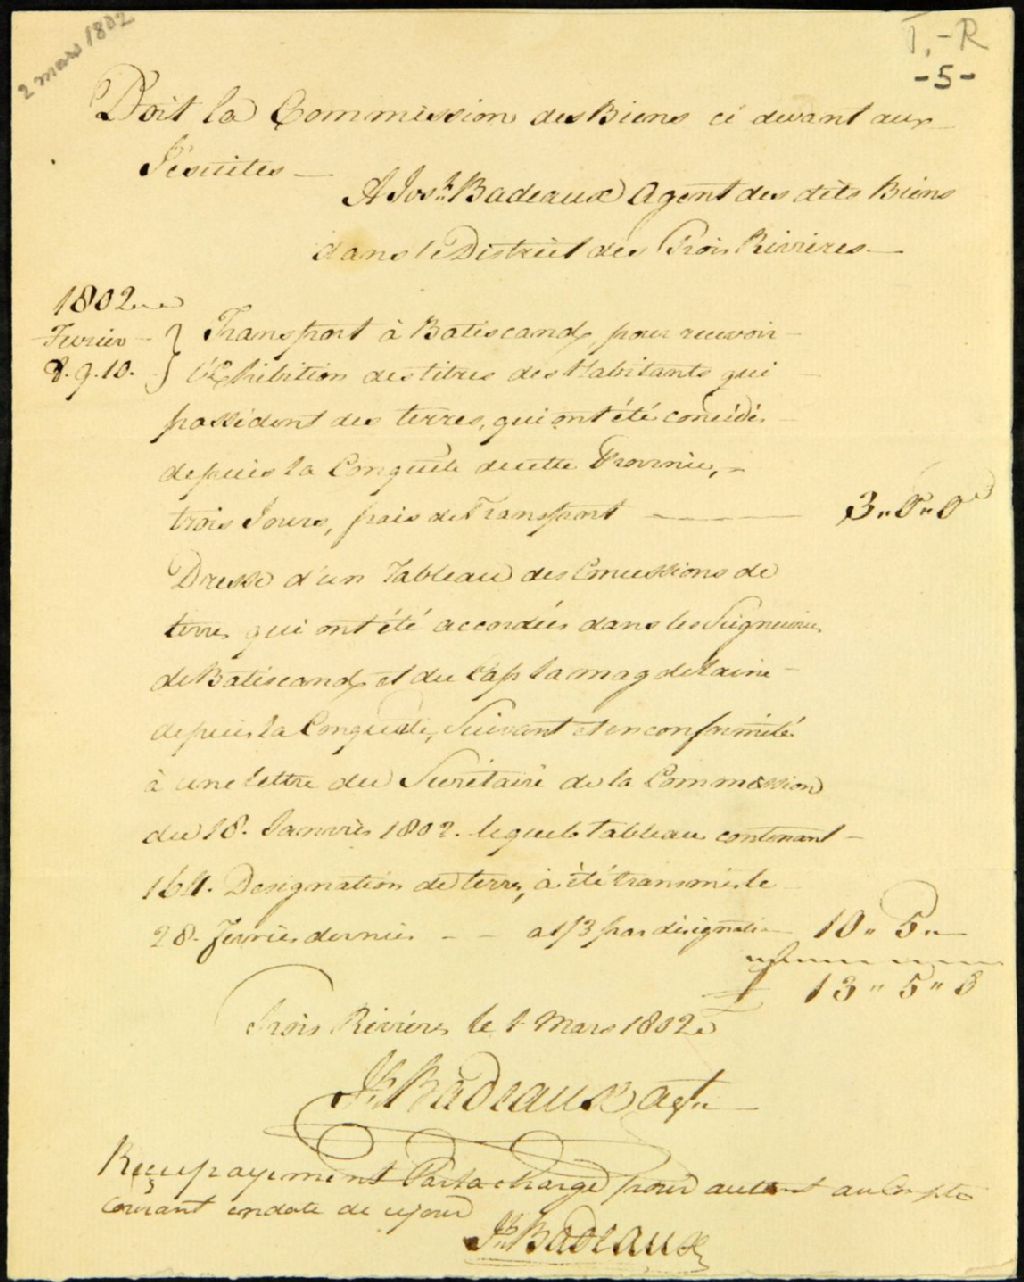 2 mars 1802
T.-R
-5-
Doit la Commission des Biens ci devant aux
Jesuites
A Jos.h Badeaux Agent des dits Biens
dans le District des Trois Rivieres
1802
Fevrier
8. 9. 10.
Transport à Batiscand, pour recevoir
l'Exhibition des titres des Habitants qui
possédent des terres, qui ont été concédés
depuis la Conquête de cette Province,
trois Jours, frais de Transport 3„0„0
Dressé d'un Tableau des Concessions de
terres qui ont été accordées dans les Seigneuries
de Batiscand, et du Cap la magdelaine
depuis la Conqueste, Suivant et en conformité
à une lettre du Secrétaire de la Commission
du 18. Janvier 1802. lequel tableau contenant
164. Designation de terres, à été transmis le
28. Fevrier dernier a 1/3 par designation 10„ 5„
£ 13„ 5„ 0
Trois Rivieres le 1 Mars 1802
Jh Badeaux agt
Reçu payement Par la charge pour autant au Compte
Courant en date de ce jour
Jh Badeaux